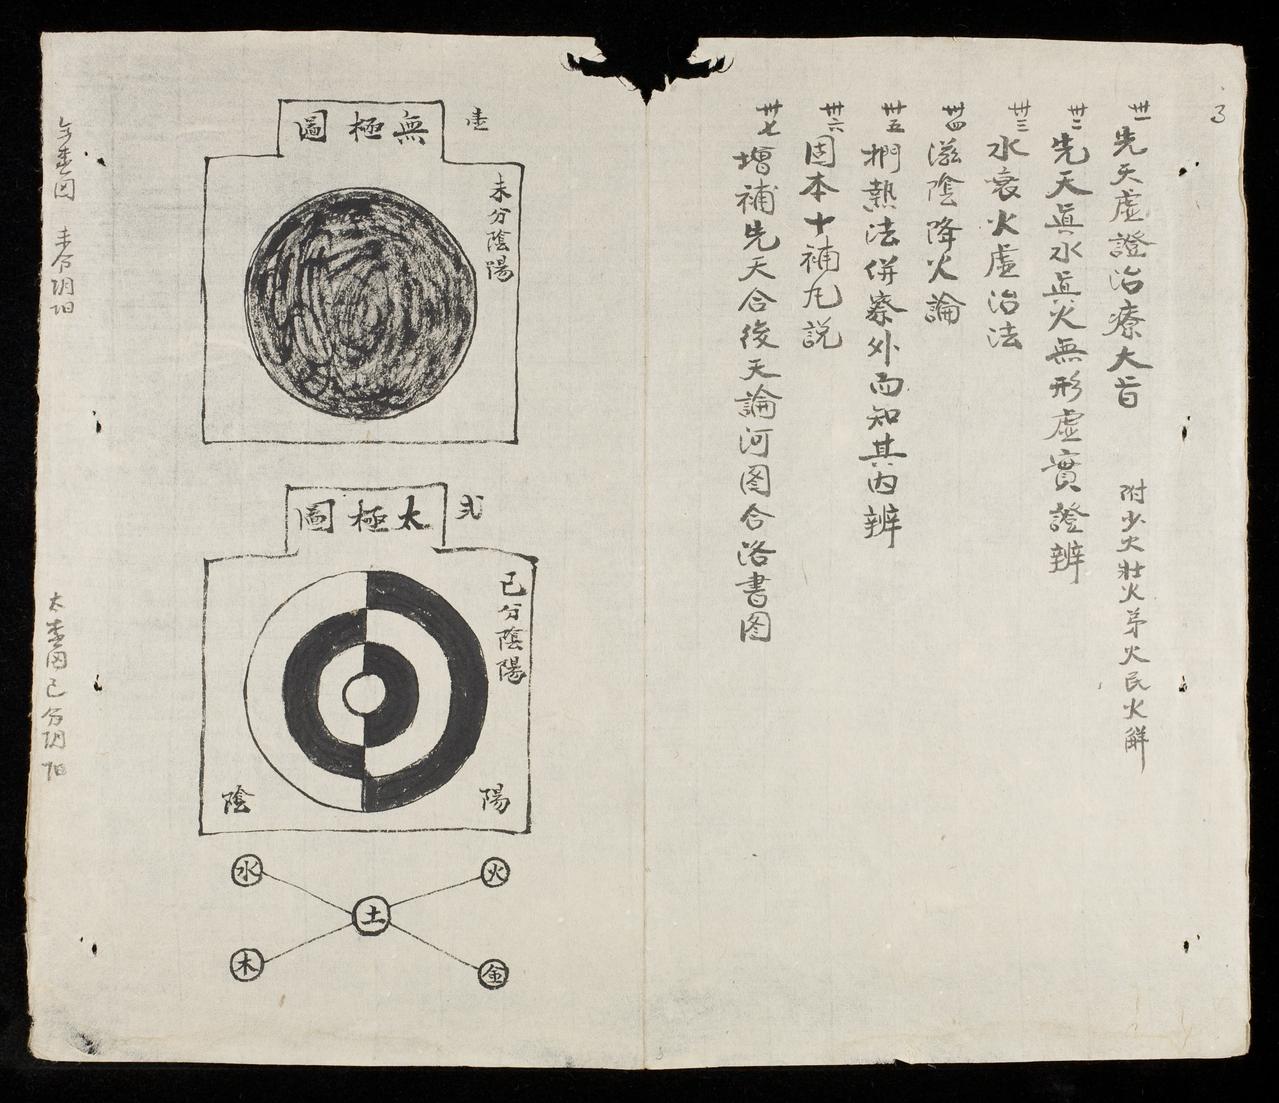 3
卅一 先天虛證治療大旨 附少火壯火君火民火解
卅二 先天眞水眞火無形虛實證辨
卅三 水衰火虛治法
卅四 滋陰降火論
卅五 捫熱法併察外而知其內辨
卅六 固本十補丸説
卅七 增補先天合後天論河图合洛書图
壹
無極圖
未分陰陽
未分阴阳
弍
太極圖
已分陰陽
陽
陰
已分阴阳
水
火
土
木
金